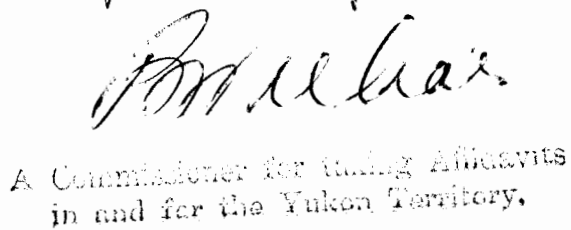 A Commissioner for taking Affidavits
in and for the Yukon Territory.